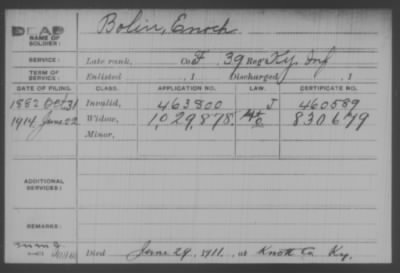 DEAD Bolin, Enoch
NAME OF SOLDIER:
SERVICE: Late rank, Co F, 39 Reg't Ky. Inf
TERM OF SERVICE: Enlisted , 1 Discharged , 1
DATE OF FILING. CLASS. APPLICATION NO. LAW. CERTIFICATE NO.
1882 Oct 31 Invalid, 463800 J 460589
1914 June 22 Widow, 1,029,878 830679
Minor,
ADDITIONAL SERVICES:
REMARKS:
Died June 29, 1911, at Knott Co Ky.